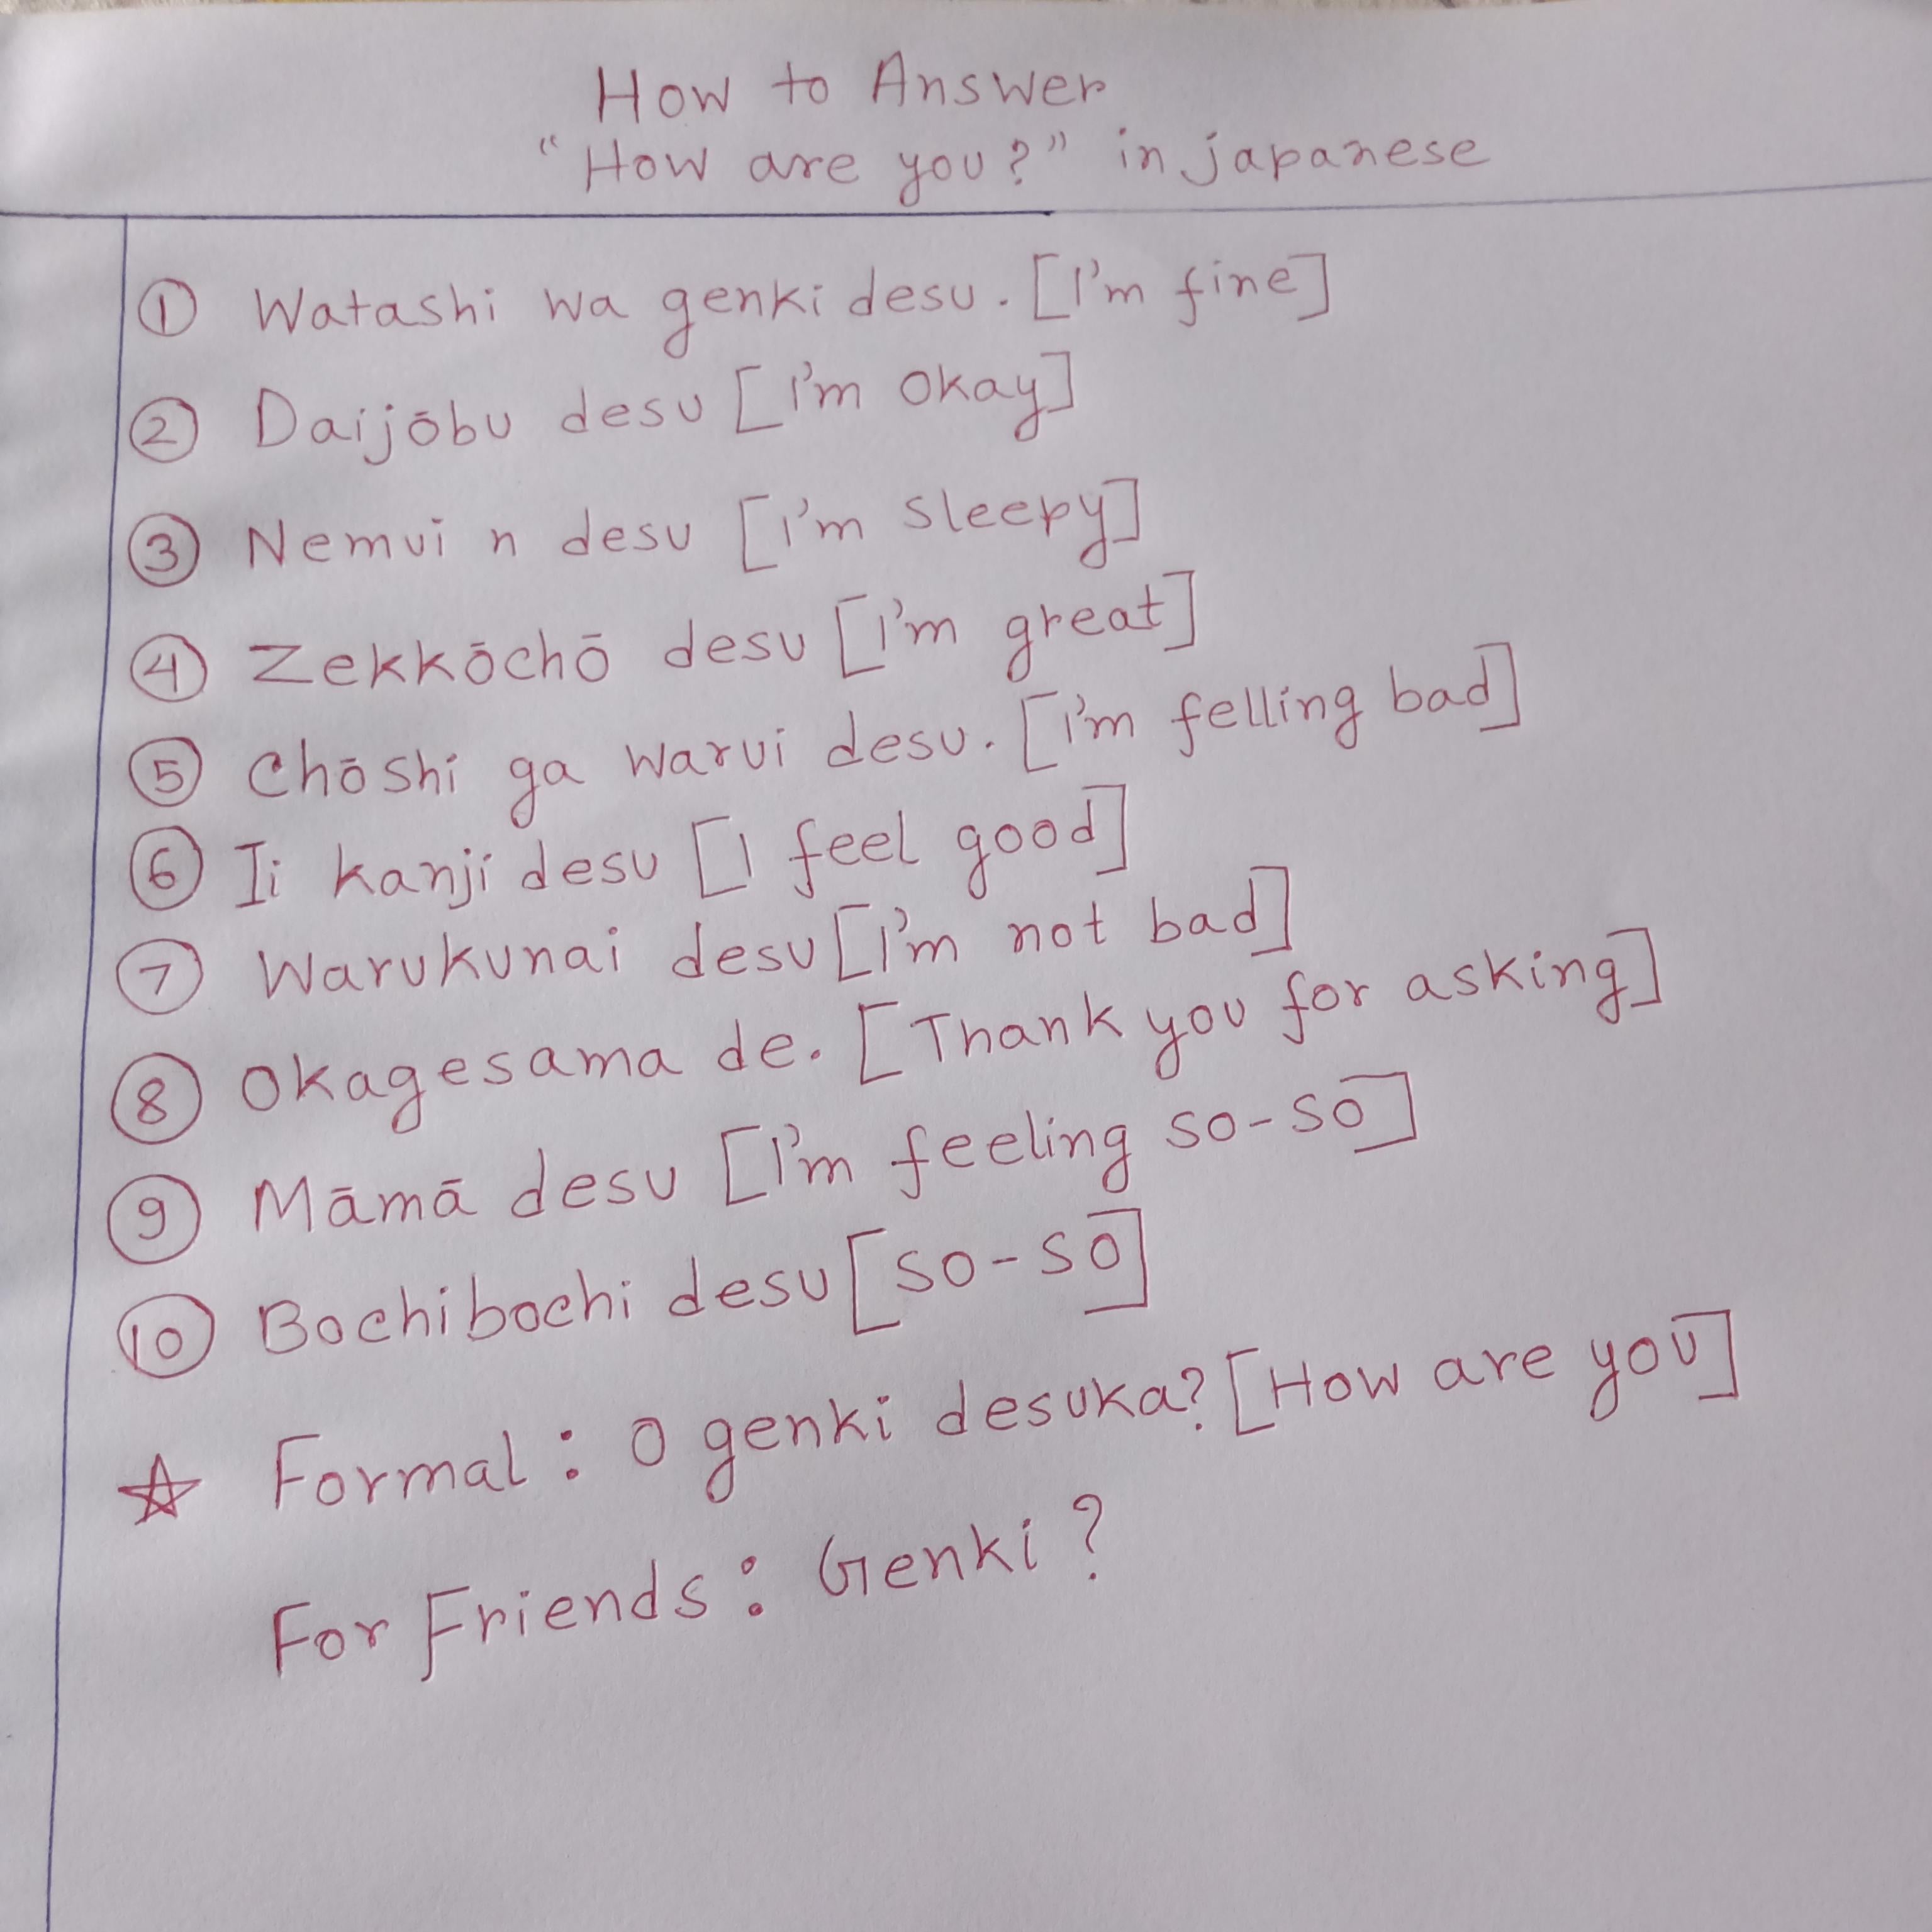 How to Answer
"How are you?" in japanese
① Watashi wa genki desu. [I'm fine]
② Daijōbu desu [I'm Okay]
③ Nemui n desu [I'm Sleepy]
④ Zekkōchō desu [I'm great]
⑤ Chōshi ga warui desu. [I'm felling bad]
⑥ Ii kanji desu [I feel good]
⑦ Warukunai desu [I'm not bad]
⑧ Okagesama de. [Thank you for asking]
⑨ Māmā desu [I'm feeling so-so]
⑩ Bochibochi desu [so-so]
☆ Formal : O genki desuka? [How are you]
For Friends : Genki ?